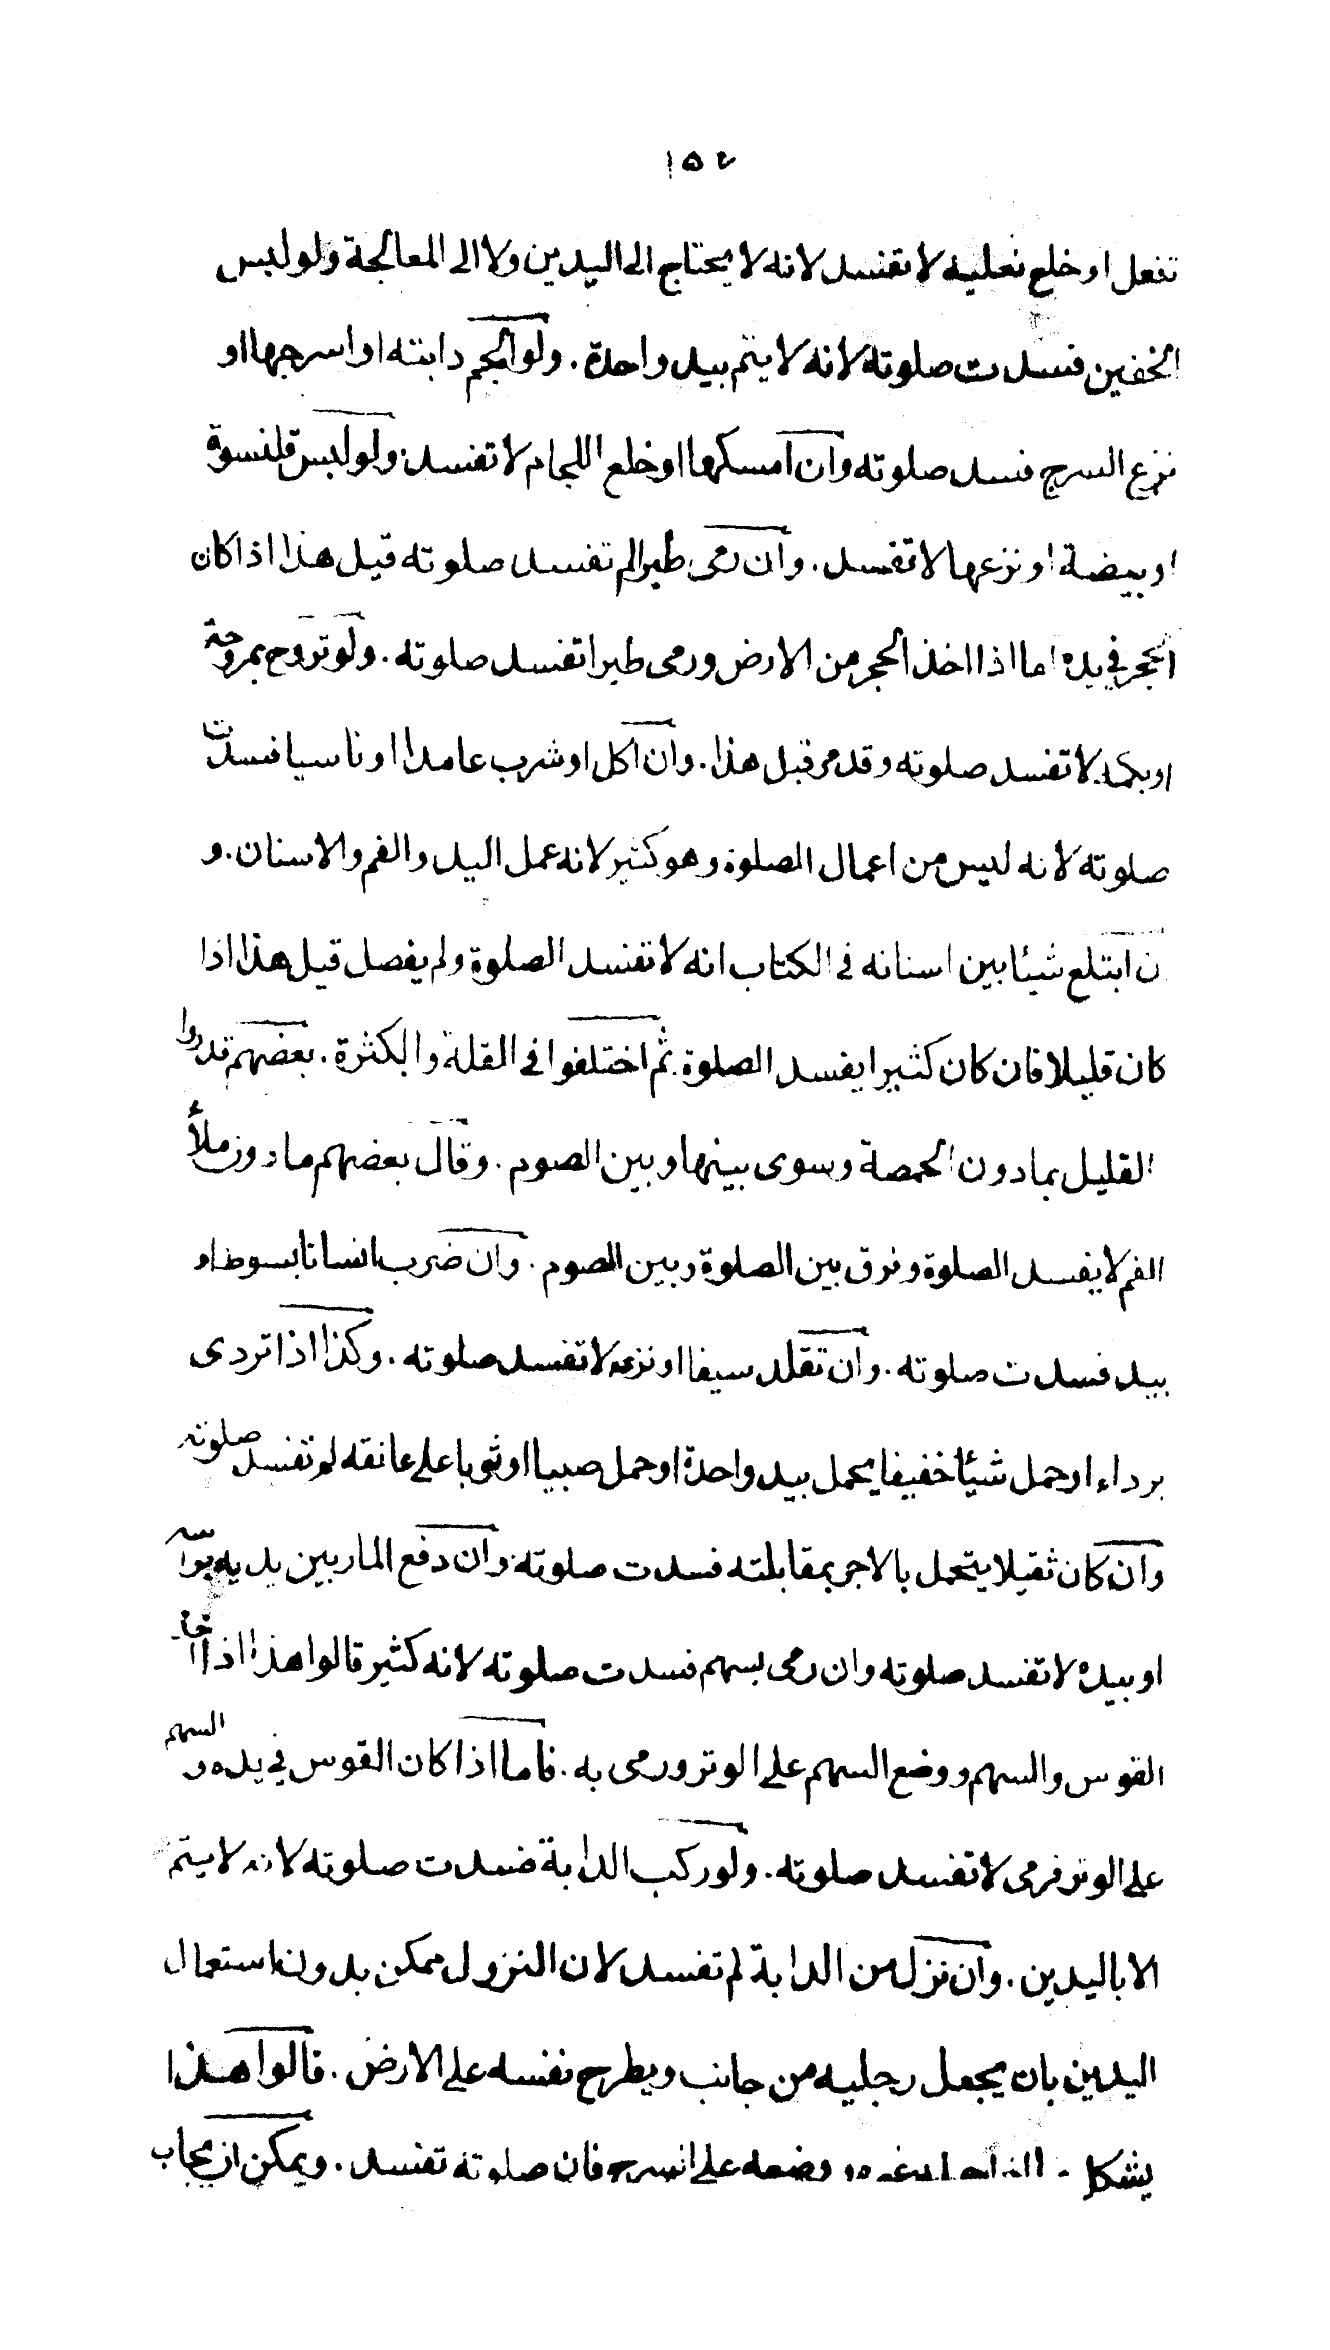 ١٥٤
تفعل او خلع نعليه لا تفسد لانه لا يحتاج الى اليدين ولا الى المعالجة ولو لبس
الخفين فسدت صلوته لانه لا يتم بيد واحدة . ولو الجم دابته او اسرجها او
نزع السرج فسد صلوته وان امسكها او خلع اللجام لا تفسد ولو لبس قلنسوة
او بيضة او نزعها لا تفسد . وان رمى طيرا لم تفسد صلوته قيل هذا اذا كان
الحجر في يده اما اذا اخذ الحجر من الارض ورمى طيرا تفسد صلوته . ولو تروح بمروحة
او بكمه لا تفسد صلوته وقد مر قبل هذا . وان اكل او شرب عامدا او ناسيا فسدت
صلوته لانه ليس من اعمال الصلوة وهو كثير لانه عمل اليد والفم والاسنان . و
ن ابتلع شيئا بين اسنانه في الكتاب انه لا تفسد الصلوة ولم يفصل قيل هذا اذا
كان قليلا فان كان كثيرا يفسد الصلوة ثم اختلفوا في القلة والكثرة . بعضهم قدروا
القليل بما دون الحمصة وسوى بينها وبين الصوم . وقال بعضهم ما دون ملأ
الفم لا يفسد الصلوة وفرق بين الصلوة وبين الصوم . وان ضرب انسانا بسوط او
بيد فسدت صلوته . وان تقلد سيفا او نزعه لا تفسد صلوته . وكذا اذا تردى
برداء او حمل شيئا خفيفا يحمل بيد واحدة او حمل صبيا او ثوبا على عاتقه لم تفسد صلوته
وان كان ثقيلا يتحمل بالاجر بمقابلته فسدت صلوته وان دفع المار بين يديه برأسه
او بيده لا تفسد صلوته وان رمى بسهم فسدت صلوته لانه كثير قالوا هذا اذا اخذ
القوس والسهم ووضع السهم على الوتر ورمى به . فاما اذا كان القوس في يده و السهم
على الوتر فرمى لا تفسد صلوته . ولو ركب الدابة فسدت صلوته لانه لا يتم
الا باليدين . وان نزل من الدابة لم تفسد لان النزول ممكن بدون استعمال
اليدين بان يجعل رجليه من جانب ويطرح نفسه على الارض . قالوا هذا
يشكل وضعه على السرج فان صلوته تفسد . ويمكن ان يجاب